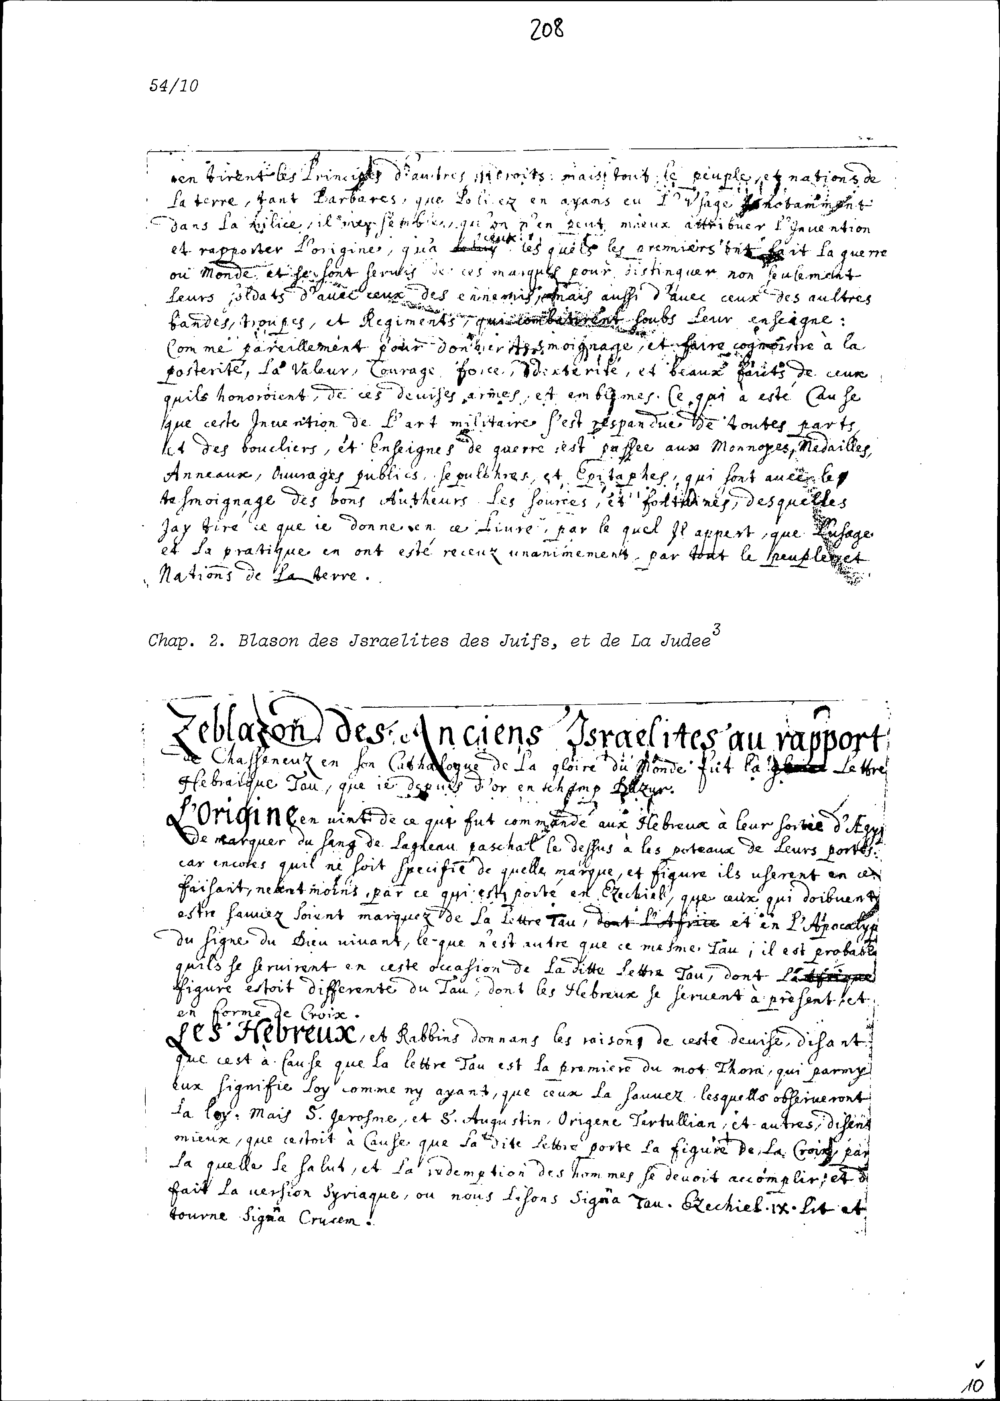 208
54/10
en tirent les Principes d'autres endroits: mais tout le peuple, et nations de
la terre, tant Barbares, que Policez en ayans eu l'Usage notamment
dans la Milice, il me semble, qu'on n'en peut mieux attribuer l'Invention
et rapporter l'origine, qu'a ceux les quels les premiers ont fait la guerre
ou Monde et se sont servis de ces marques pour distinguer non seulement
leurs soldats d'avec ceux des ennemis, mais aussi d'avec ceux des aultres
bandes, troupes, et Regiments, qui combatirent soubs leur enseigne:
Comme pareillement pour donner tesmoignage, et faire cognoistre à la
posterité, la valeur, Courage, force, Dexterité, et beaux faits de ceux
quils honoroient, de ces devises, armes, et emblemes. Ce qui a esté Cause
que ceste Invention de l'art militaire s'est respandue de toutes parts,
et des boucliers, et Enseignes de guerre est passee aux Monnoyes, Medailles,
Anneaux, Ouvrages publics, sepulchres, et Epitaphes, qui sont avec le
tesmoignage des bons Autheurs les sources, et fontaines, desquelles
Jay tiré ce que ie donne en ce Livre, par le quel Il appert, que l'usage
et la pratique en ont esté receuz unanimement par tout le peuple et
Nations de la terre.
Chap. 2. Blason des Jsraelites des Juifs, et de La Judee3
Le blazon des Anciens Israelites au rapport
de Chasseneuz en son Cathalogue de la gloire du Monde fut la Lettre
Hebraique Tau, que ie depuis d'or en champ d'Azur.
L'Origine en vint de ce que fut commandé aux Hebreux à leur sortie d'Ægyp
De marquer du sang de Lagneau paschal le dessus à les poteaux de leurs portes:
car encores quil ne soit specifié de quelle marque, et figure ils userent en ce
faisant, neantmoins, par ce qui est porté en Ezechiel, que ceux qui doibuent
estre sauvez soient marquez de la lettre Tau, dont l'Africe et en l'Apocalyp
du signe du Dieu vivant, le que n'est autre que ce mesme Tau; il est probable
quils se servirent en ceste occasion de la ditte lettre Tau, dont la
figure estoit differente du Tau, dont les Hebreux se servent à present, et
en forme de Croix.
Les Hebreux, et Rabbins donnans les raisons de ceste devise, disant
que cest à Cause que la lettre Tau est la premiere du mot Thora, qui parmy
eux signifie loy comme ny ayant, que ceux la sauvez lesquels observeront
la loy. Mais S. Jerosme, et S. Augustin, Origene Tertullian, et autres, disent
mieux, que cestoit à Cause que la dite lettre porte la figure de la Croix, par
la quelle le salut, et la redemption des hommes se devoit accomplir; et
fait la version Syriaque, ou nous lisons Signa Tau. Ezechiel. IX. lit et
tourne Signa Crucem.
10